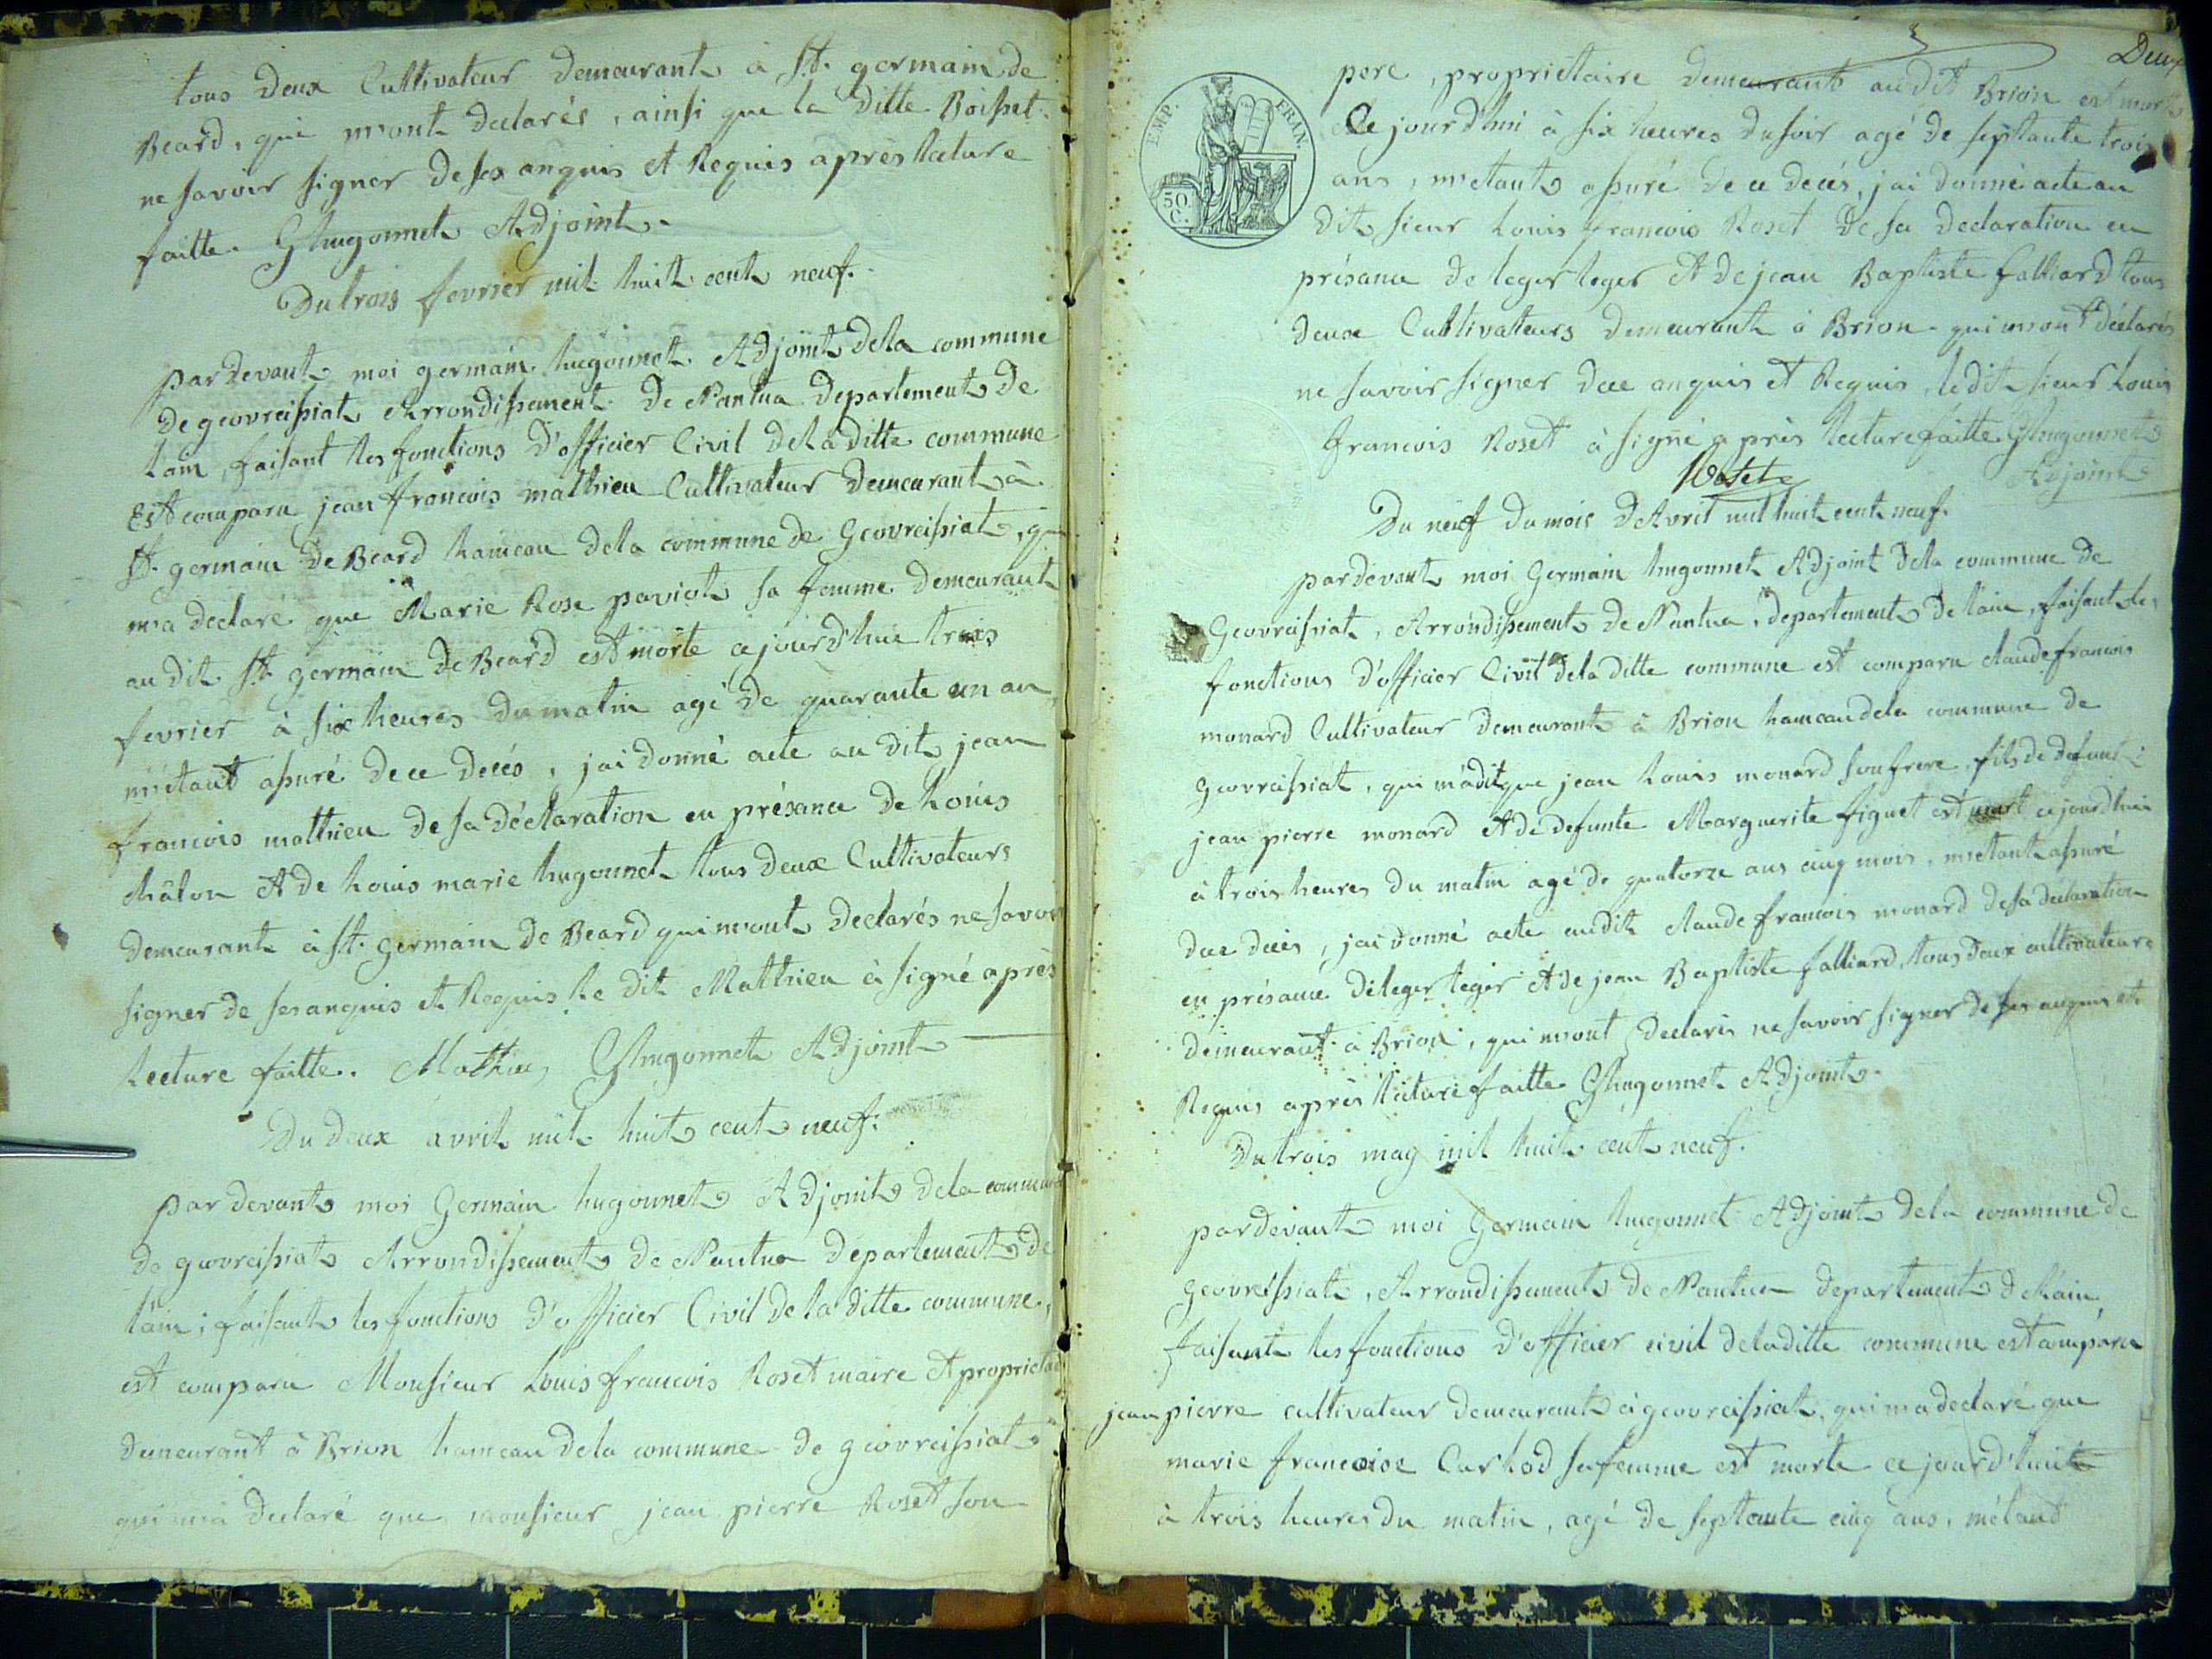 tous deux Cultivateur demeurant à St. germain de
Beard, qui mont declarés, ainsi que la ditte Boisset
ne savoir signer de ses anquis et Requis après lecture
faitte. GHugonnet Adjoint.
Du trois fevrier mil huit cent neuf.
par devant moi germain hugonnet Adjoint dela commune
de geovreissiat Arrondissement de Nantua Departement de
Lain, faisant les fonctions d'officier Civil dela ditte commune
Est comparu jean francois mathieu Cultivateur demeurant à
St. germain de Beard hameau dela commune de Geovreissiat, qui
ma declaré que Marie Rose paviot sa femme demeurant
au dit St germain de Beard est morte cejourd'hui trois
fevrier à six heures du matin agé de quarante un an,
m'etant assuré de ce decés, jai donné acte au dit jean
francois mathieu de sa déclaration en présance de Louis
châlon et de Louis marie hugonnet tous deux Cultivateurs
demeurant à St. germain de Beard qui mont declarés ne savoir
signer de ses anquis et Requis le dit Mathieu à signé après
Lecture faitte. Mathieu GHugonnet Adjoint
Du deux avril mil huit cent neuf.
par devant moi Germain hugonnet Adjoint dela commune
de geovreissiat Arrondissement de Nantua département de
lain, faisant les fonctions d'officier Civil de la ditte commune,
est comparu Monsieur Louis francois Roset maire et proprietaire
demeurant à Brion hameau dela commune de geovreissiat
qui ma declaré que monsieur jean pierre Roset son
Deux
EMP. FRAN.
50 C.
pere, proprietaire demeurant au dit Brion est mort
Ce jourd'hui à six heures du soir agé de septante trois
ans, m'etant assuré de ce decés, jai donné acte au
dit sieur Louis francois Roset de sa declaration en
présance de leger leger et de jean Baptiste falliard tous
deux Cultivatteurs demeurant à Brion qui mont déclarés
ne savoir signer de ce anquis et Requis, le dit sieur Louis
francois Roset à signé après lecture faitte GHugonnet
Roset Adjoint
Du neuf du mois d'Avril mil huit cent neuf.
par devant moi Germain hugonnet Adjoint dela commune de
Geovreissiat, Arrondissement de Nantua, departement de lain, faisant les
fonctions d'officier Civil dela ditte commune est comparu claude francois
monard Cultivateur demeurant à Brion hameau dela commune de
geovreissiat, qui m'a dit que jean Louis monard son frere, fils de defunt
jean pierre monard et de defunte Marguerite figuet est mort cejourd'hui
à trois heures du matin agé de quatorze ans cinq mois, m'etant assuré
de ce decés, jai donné acte audit claude francois monard de sa declaration
en présance de leger leger et de jean Baptiste falliard, tous deux cultivateurs
demeurant à Brion, qui mont declarés ne savoir signer de ses anquis et
Requis après lecture faitte GHugonnet Adjoint.
Du trois may mil huit cent neuf.
par devant moi Germain hugonnet Adjoint dela commune de
geovreissiat, Arrondissement de Nantua departement de Lain
faisant les fonctions d'officier civil dela ditte commune est comparu
jean pierre cultivateur demeurant à geovreissiat, qui ma declaré que
marie francoise Carhod sa femme est morte cejourd'huit
à trois heures du matin, agé de septante cinq ans, métant